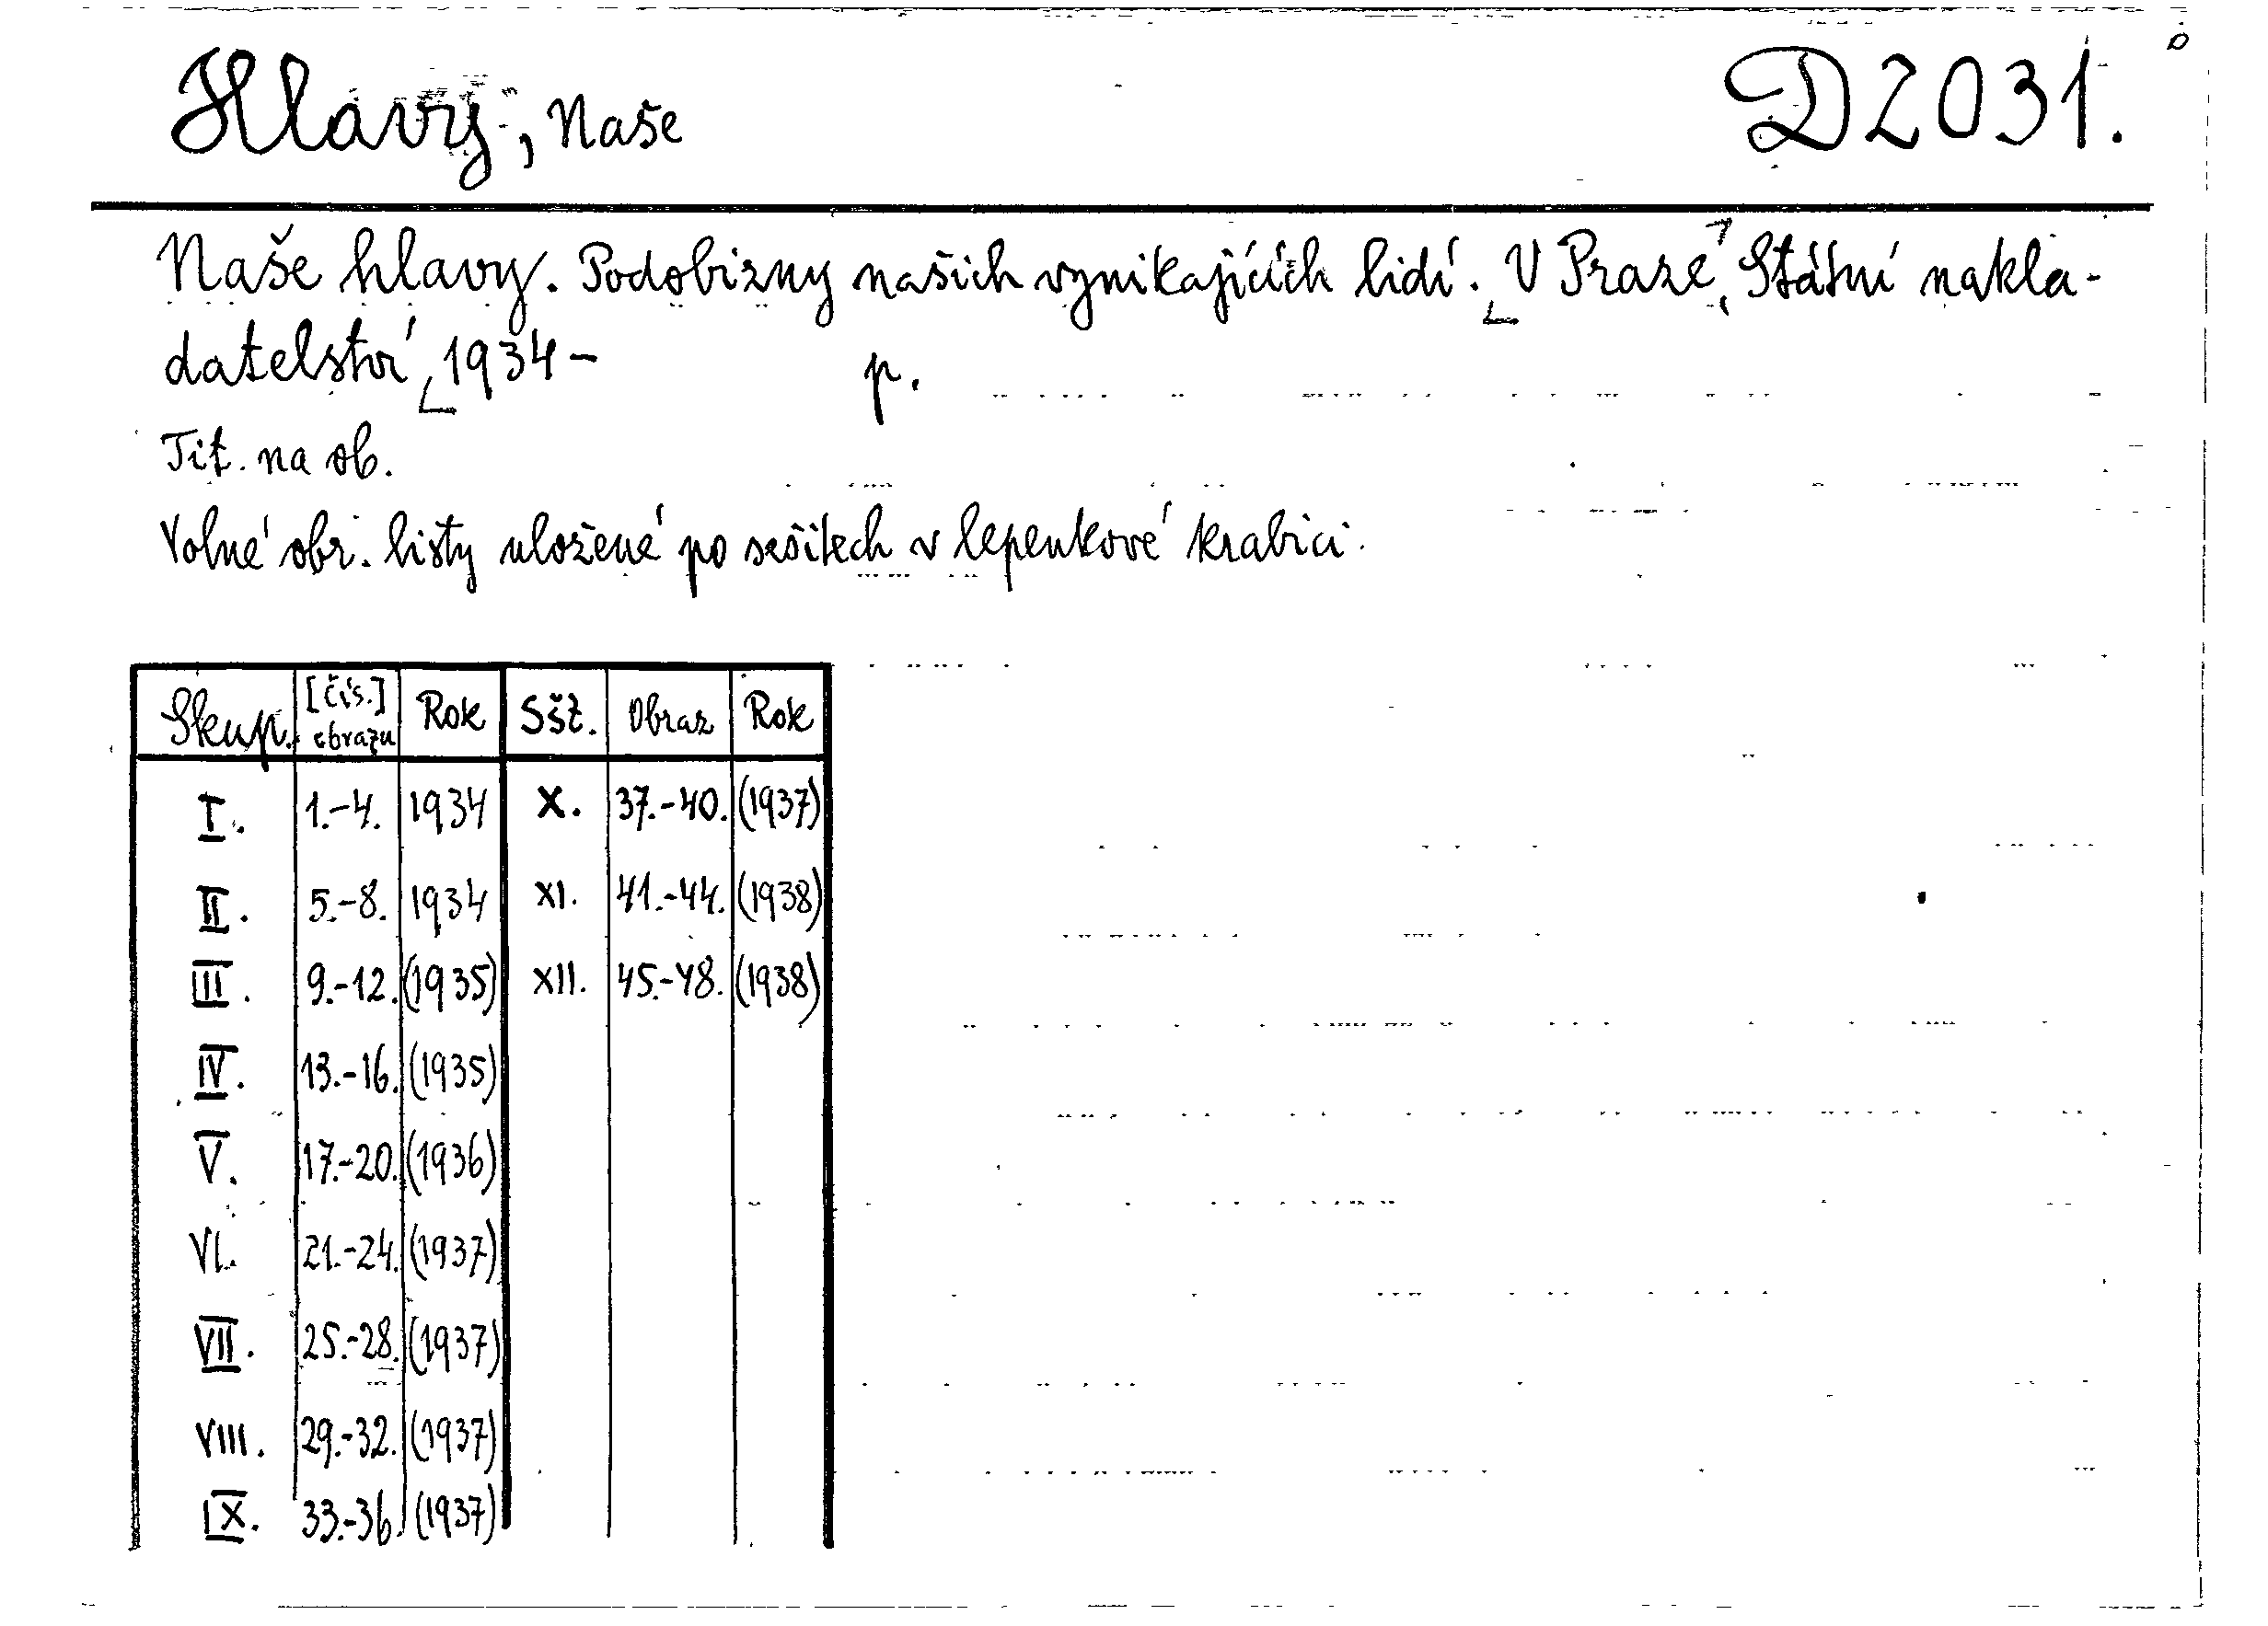 Hlavy, Naše D2031.
Naše hlavy. Podobizny našich vynikajících lidí. V Praze, Státní nakla-
datelství, 1934- p.
Tit. na ob.
Volné obr. listy uložené po sešitech v lepenkové krabici.
Skup. [čís.] obrazu Rok Sšt. Obraz Rok
I. 1.-4. 1934 X. 37.-40. (1937)
II. 5.-8. 1934 XI. 41.-44. (1938)
III. 9.-12. (1935) XII. 45.-48. (1938)
IV. 13.-16. (1935)
V. 17.-20. (1936)
VI. 21.-24. (1937)
VII. 25.-28. (1937)
VIII. 29.-32. (1937)
IX. 33.-36. (1937)